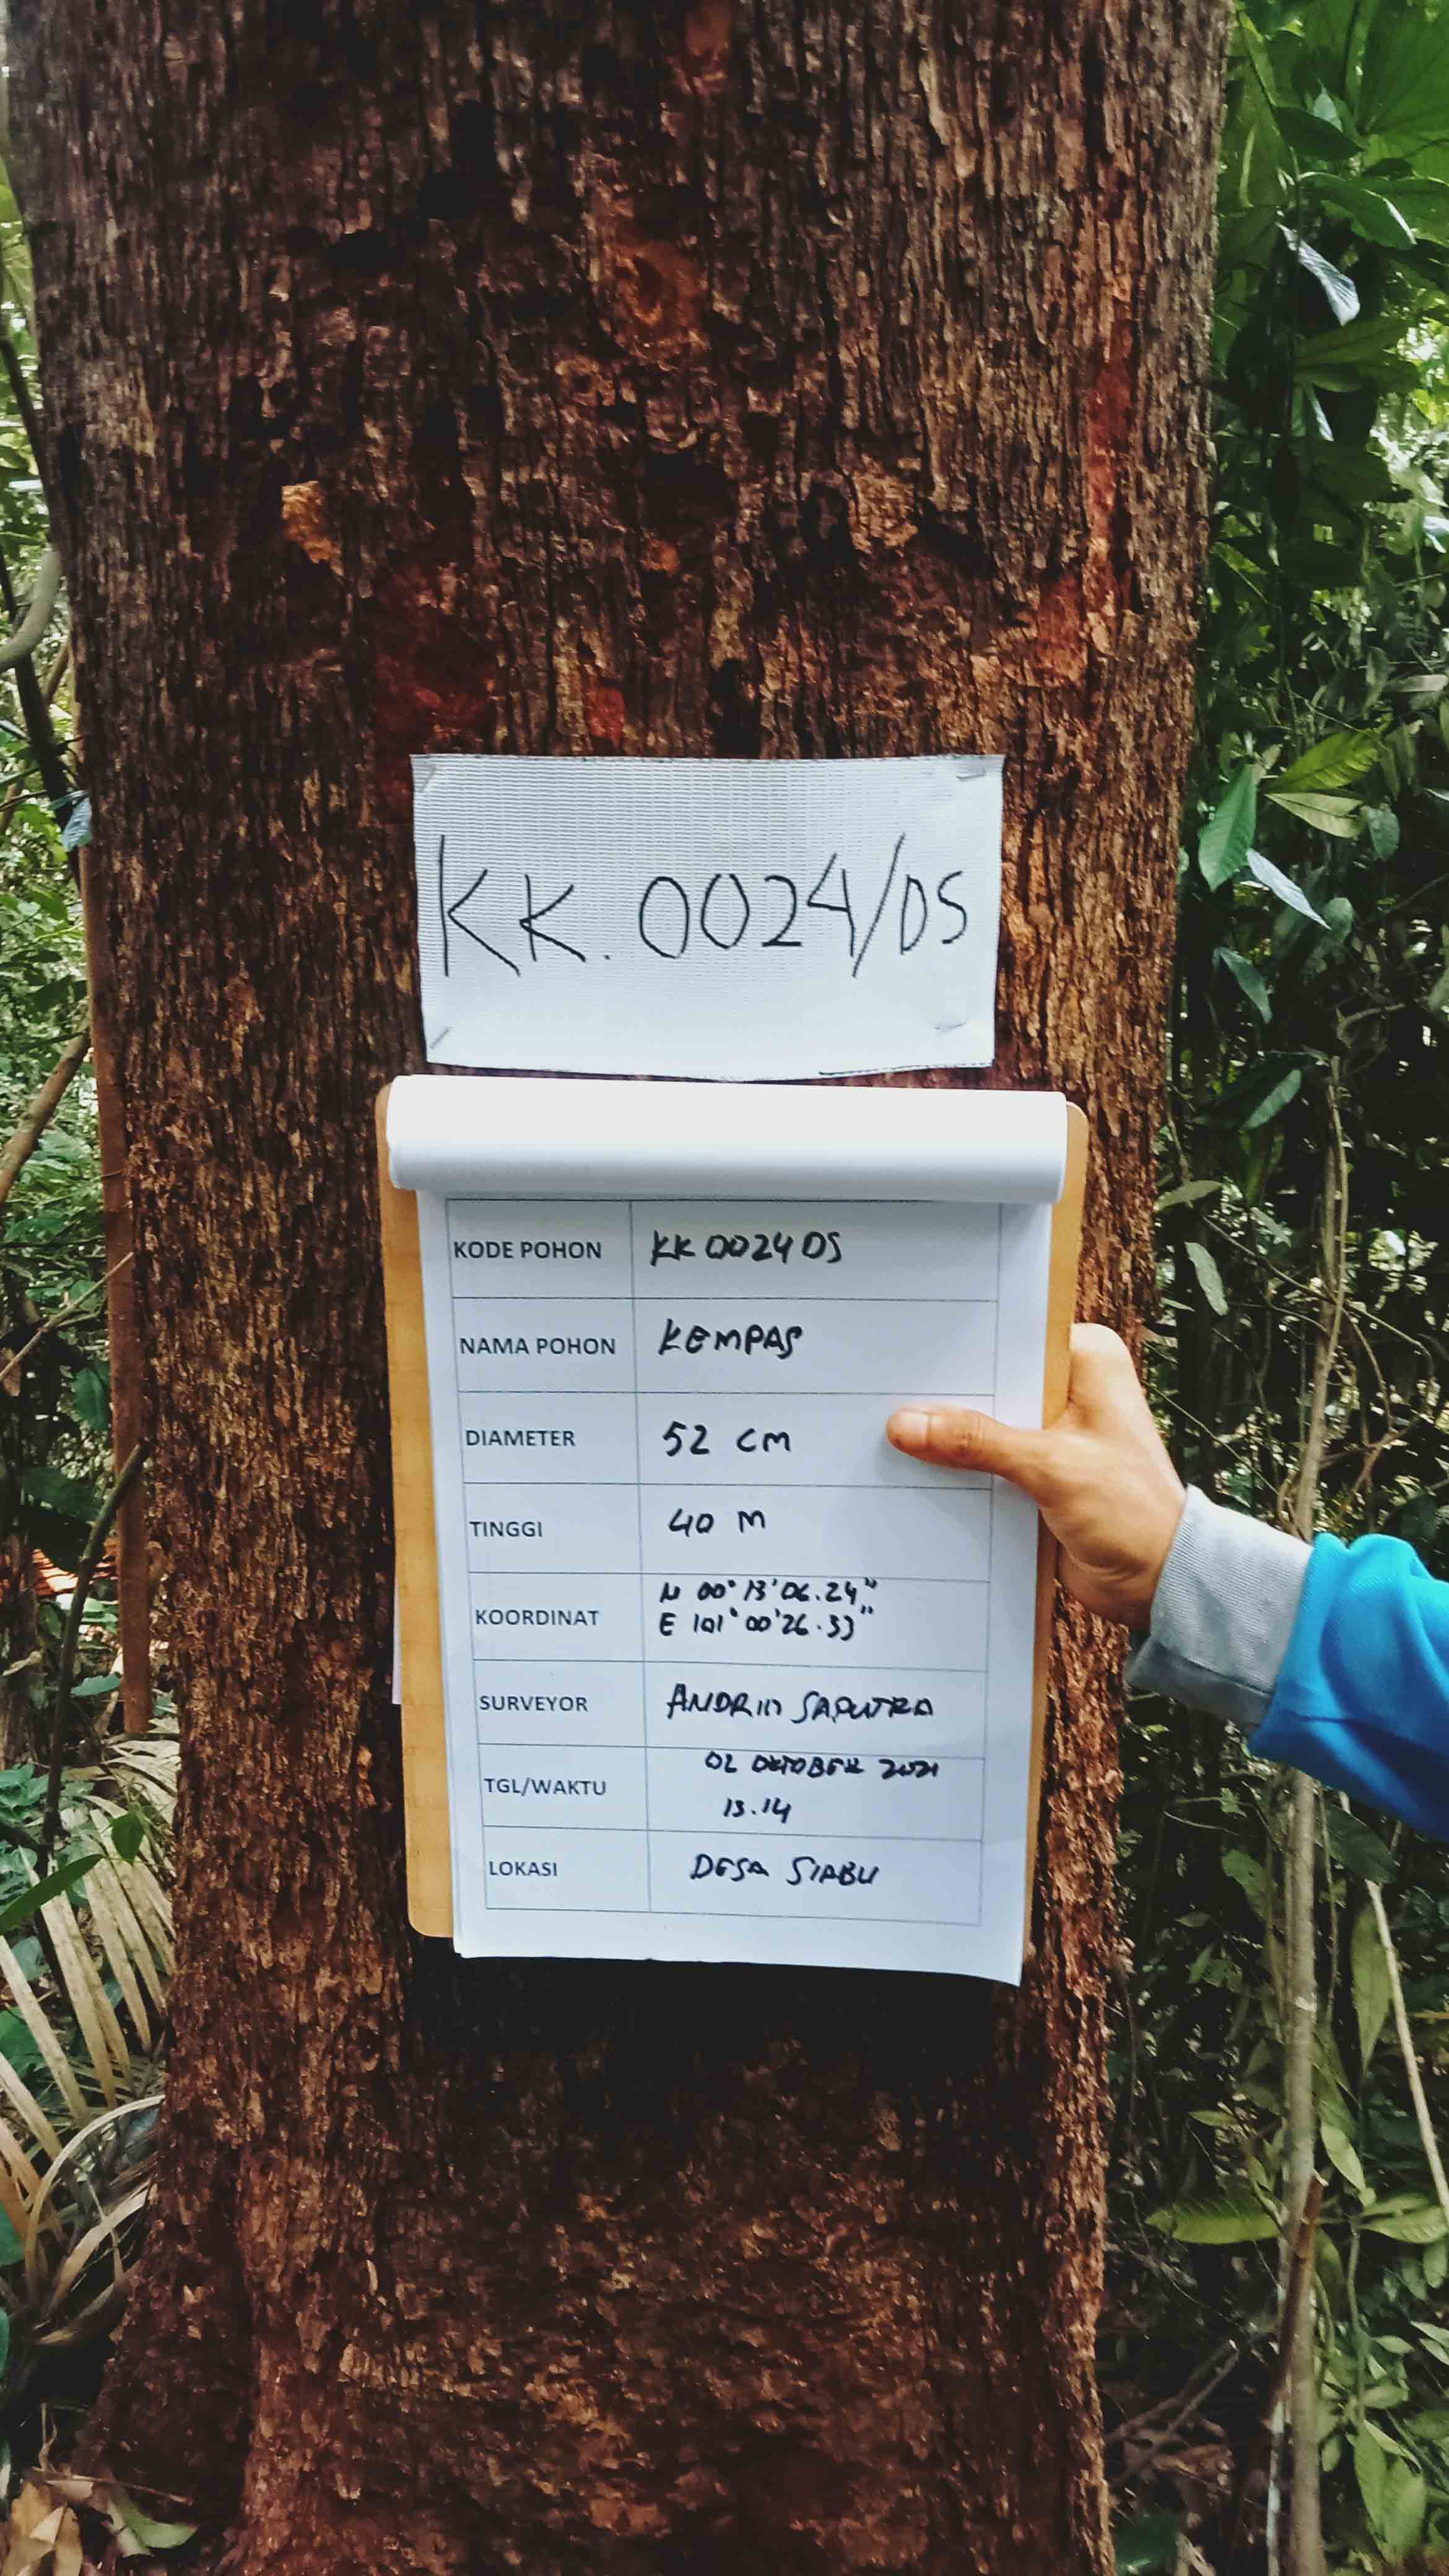 KK.0024/DS
KODE POHON KK 0024 DS
NAMA POHON KEMPAS
DIAMETER 52 CM
TINGGI 40 M
KOORDINAT N 00° 13' 06.24"
E 101° 00' 26.33"
SURVEYOR SAPUTRA
TGL/WAKTU 02 OKTOBER 2021
13.14
LOKASI DESA SIABU